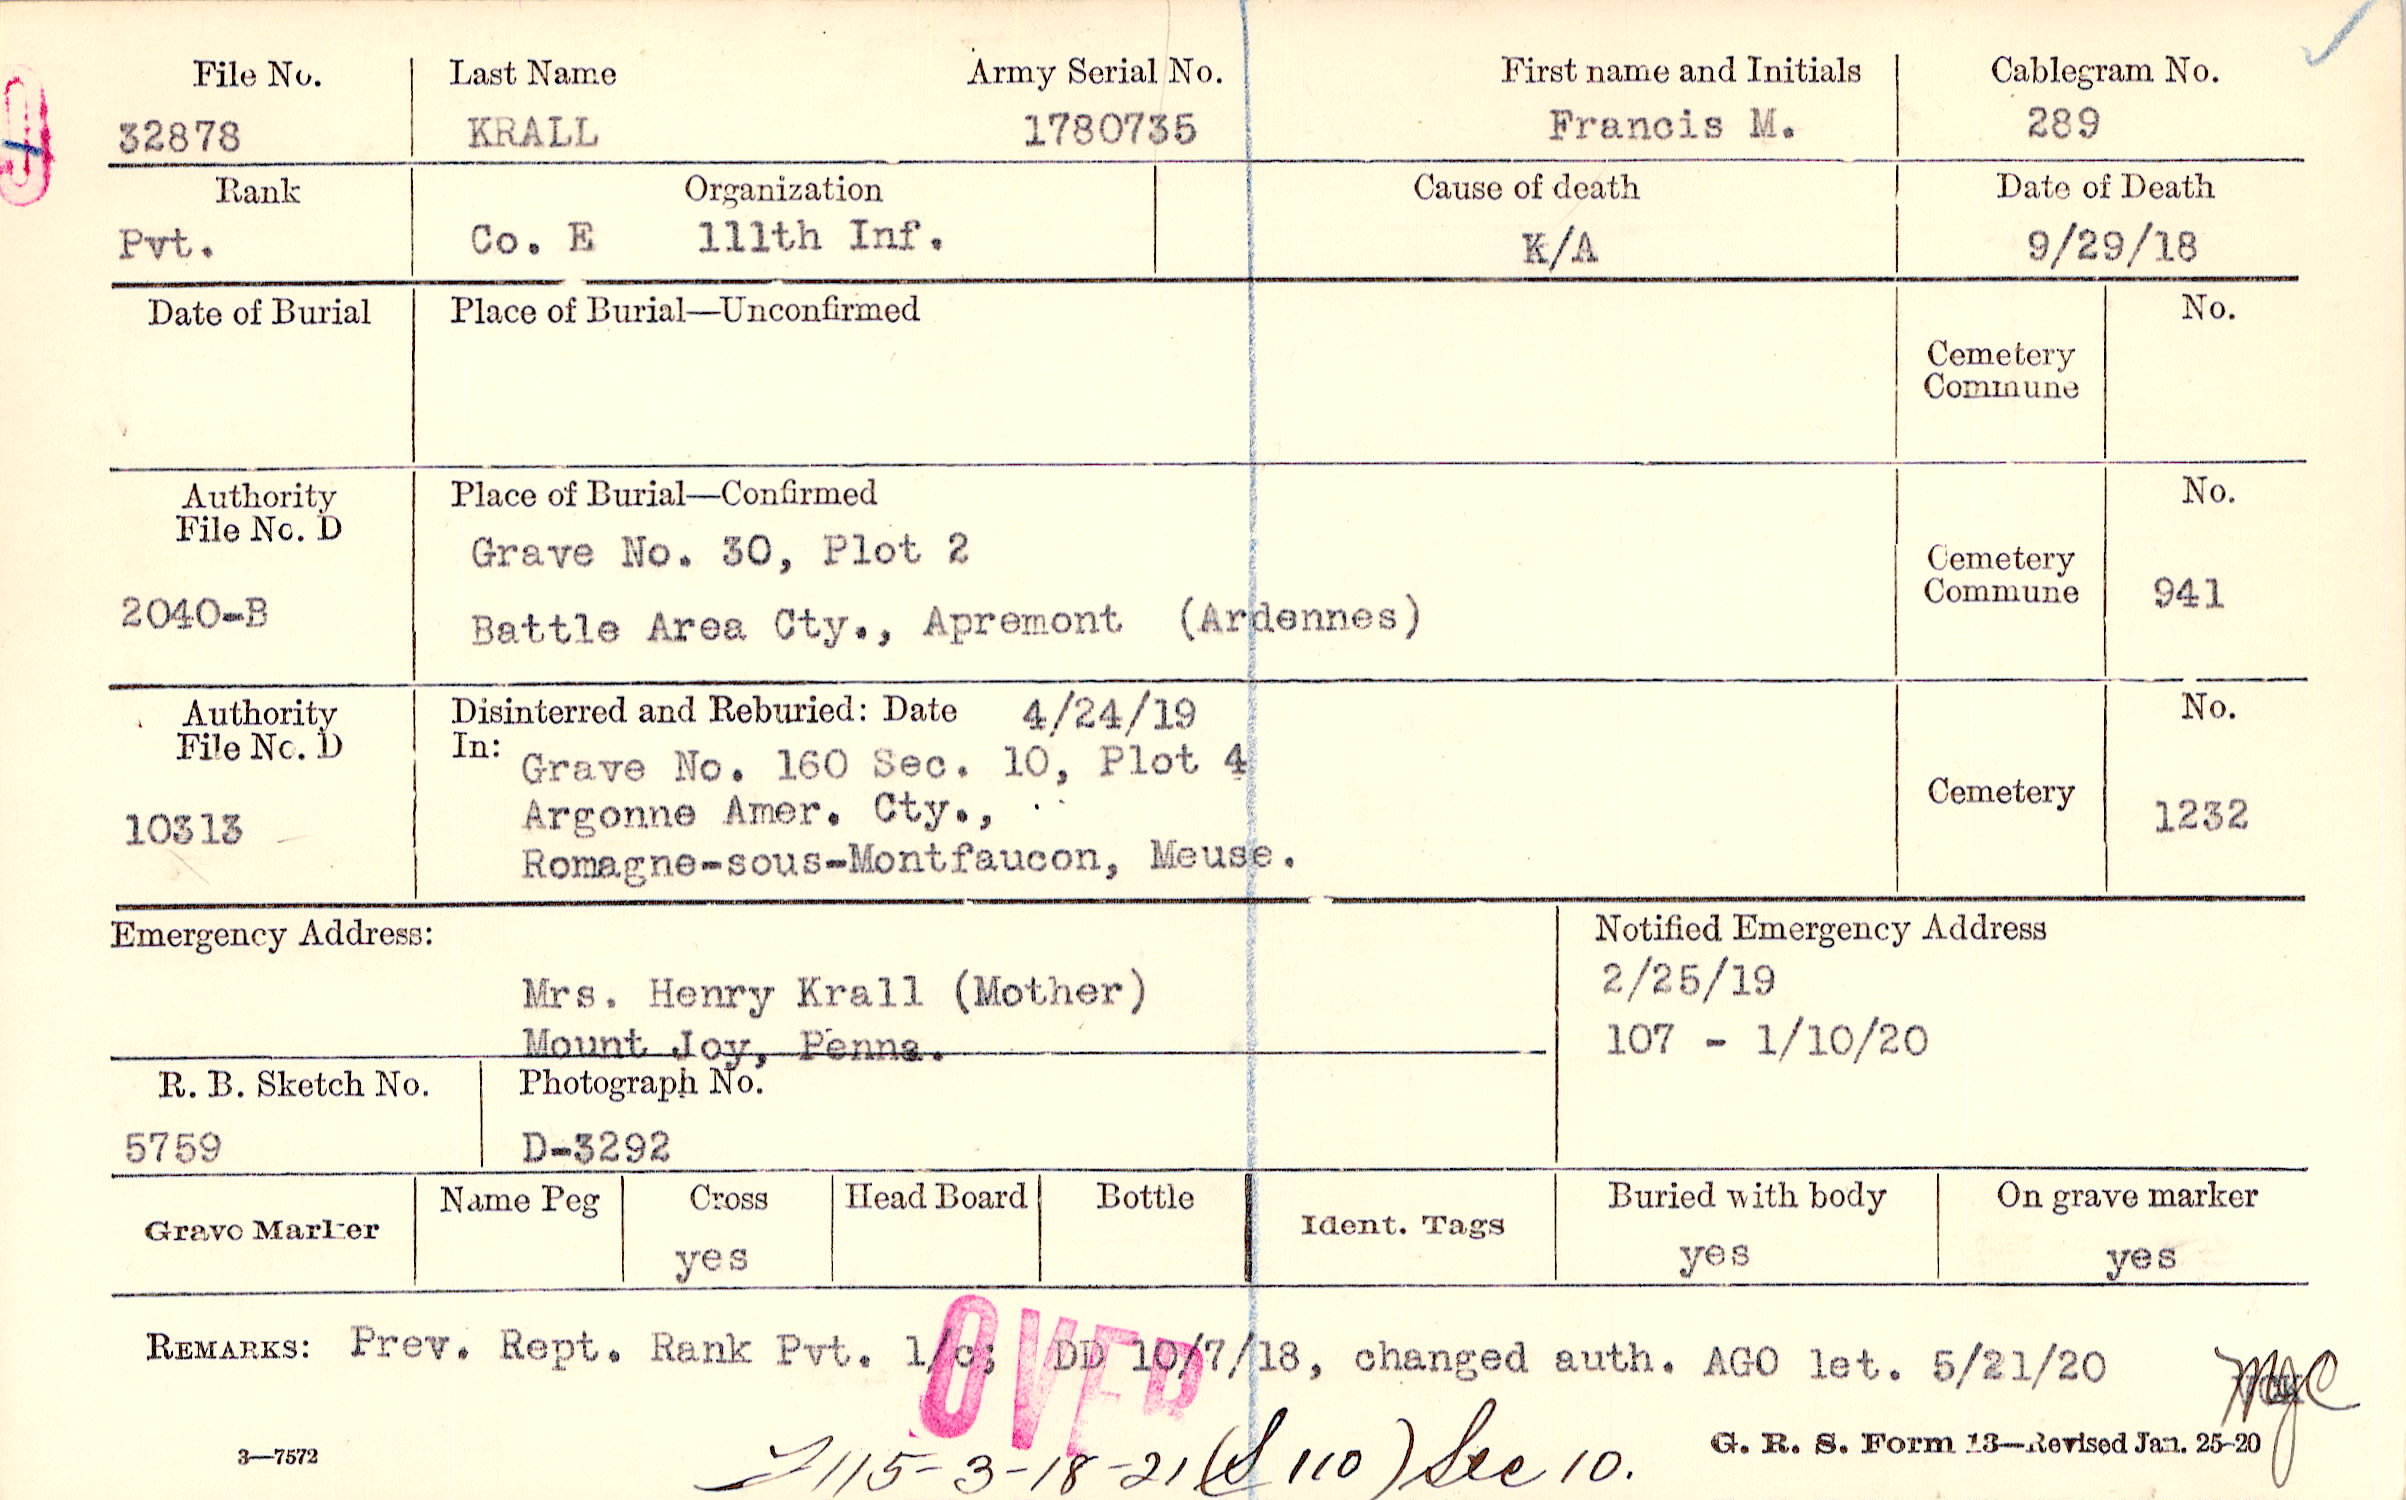 File No. Last Name Army Serial No. First name and Initials Cablegram No.
32878 KRALL 1780735 Francis M. 289
Rank Organization Cause of death Date of Death
Pvt. Co. E 111th Inf. K/A 9/29/18
Date of Burial Place of Burial—Unconfirmed No.
Cemetery
Commune
Authority Place of Burial—Confirmed No.
File No. D
Grave No. 30, Plot 2
Cemetery
Commune 941
2040-B Battle Area Cty., Apremont (Ardennes)
Authority Disinterred and Reburied: Date 4/24/19 No.
File No. D In:
Grave No. 160 Sec. 10, Plot 4
Cemetery
10313 Argonne Amer. Cty., 1232
Romagne-sous-Montfaucon, Meuse.
Emergency Address: Notified Emergency Address
Mrs. Henry Krall (Mother) 2/25/19
Mount Joy, Penna. 107 - 1/10/20
R. B. Sketch No. Photograph No.
5759 D-3292
Grave Marker Name Peg Cross Head Board Bottle Ident. Tags Buried with body On grave marker
yes yes yes
REMARKS: Prev. Rept. Rank Pvt. 1/c; DD 10/7/18, changed auth. AGO let. 5/21/20
OVER
3—7572 115-3-18-21 (S 110) Sec 10. G. R. S. Form 13—Revised Jan. 25-20